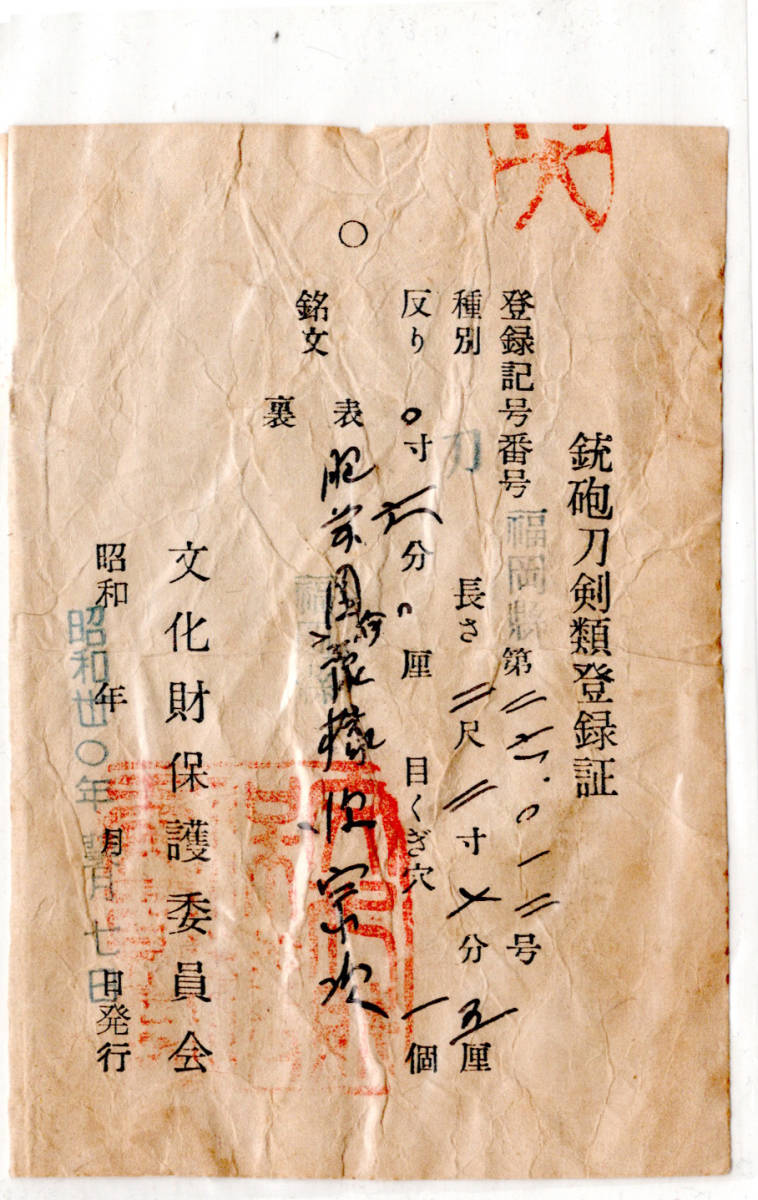 銃砲刀剣類登録証
登録記号番号 福岡縣 第二五〇一二号
種別 刀 長さ 二尺 二寸 七分 五厘
反り 〇寸 六分 〇厘 目くぎ穴 一個
銘文 表 肥前国 宗次
裏
文化財保護委員会
昭和 年 月 日発行
昭和四〇年 月七日